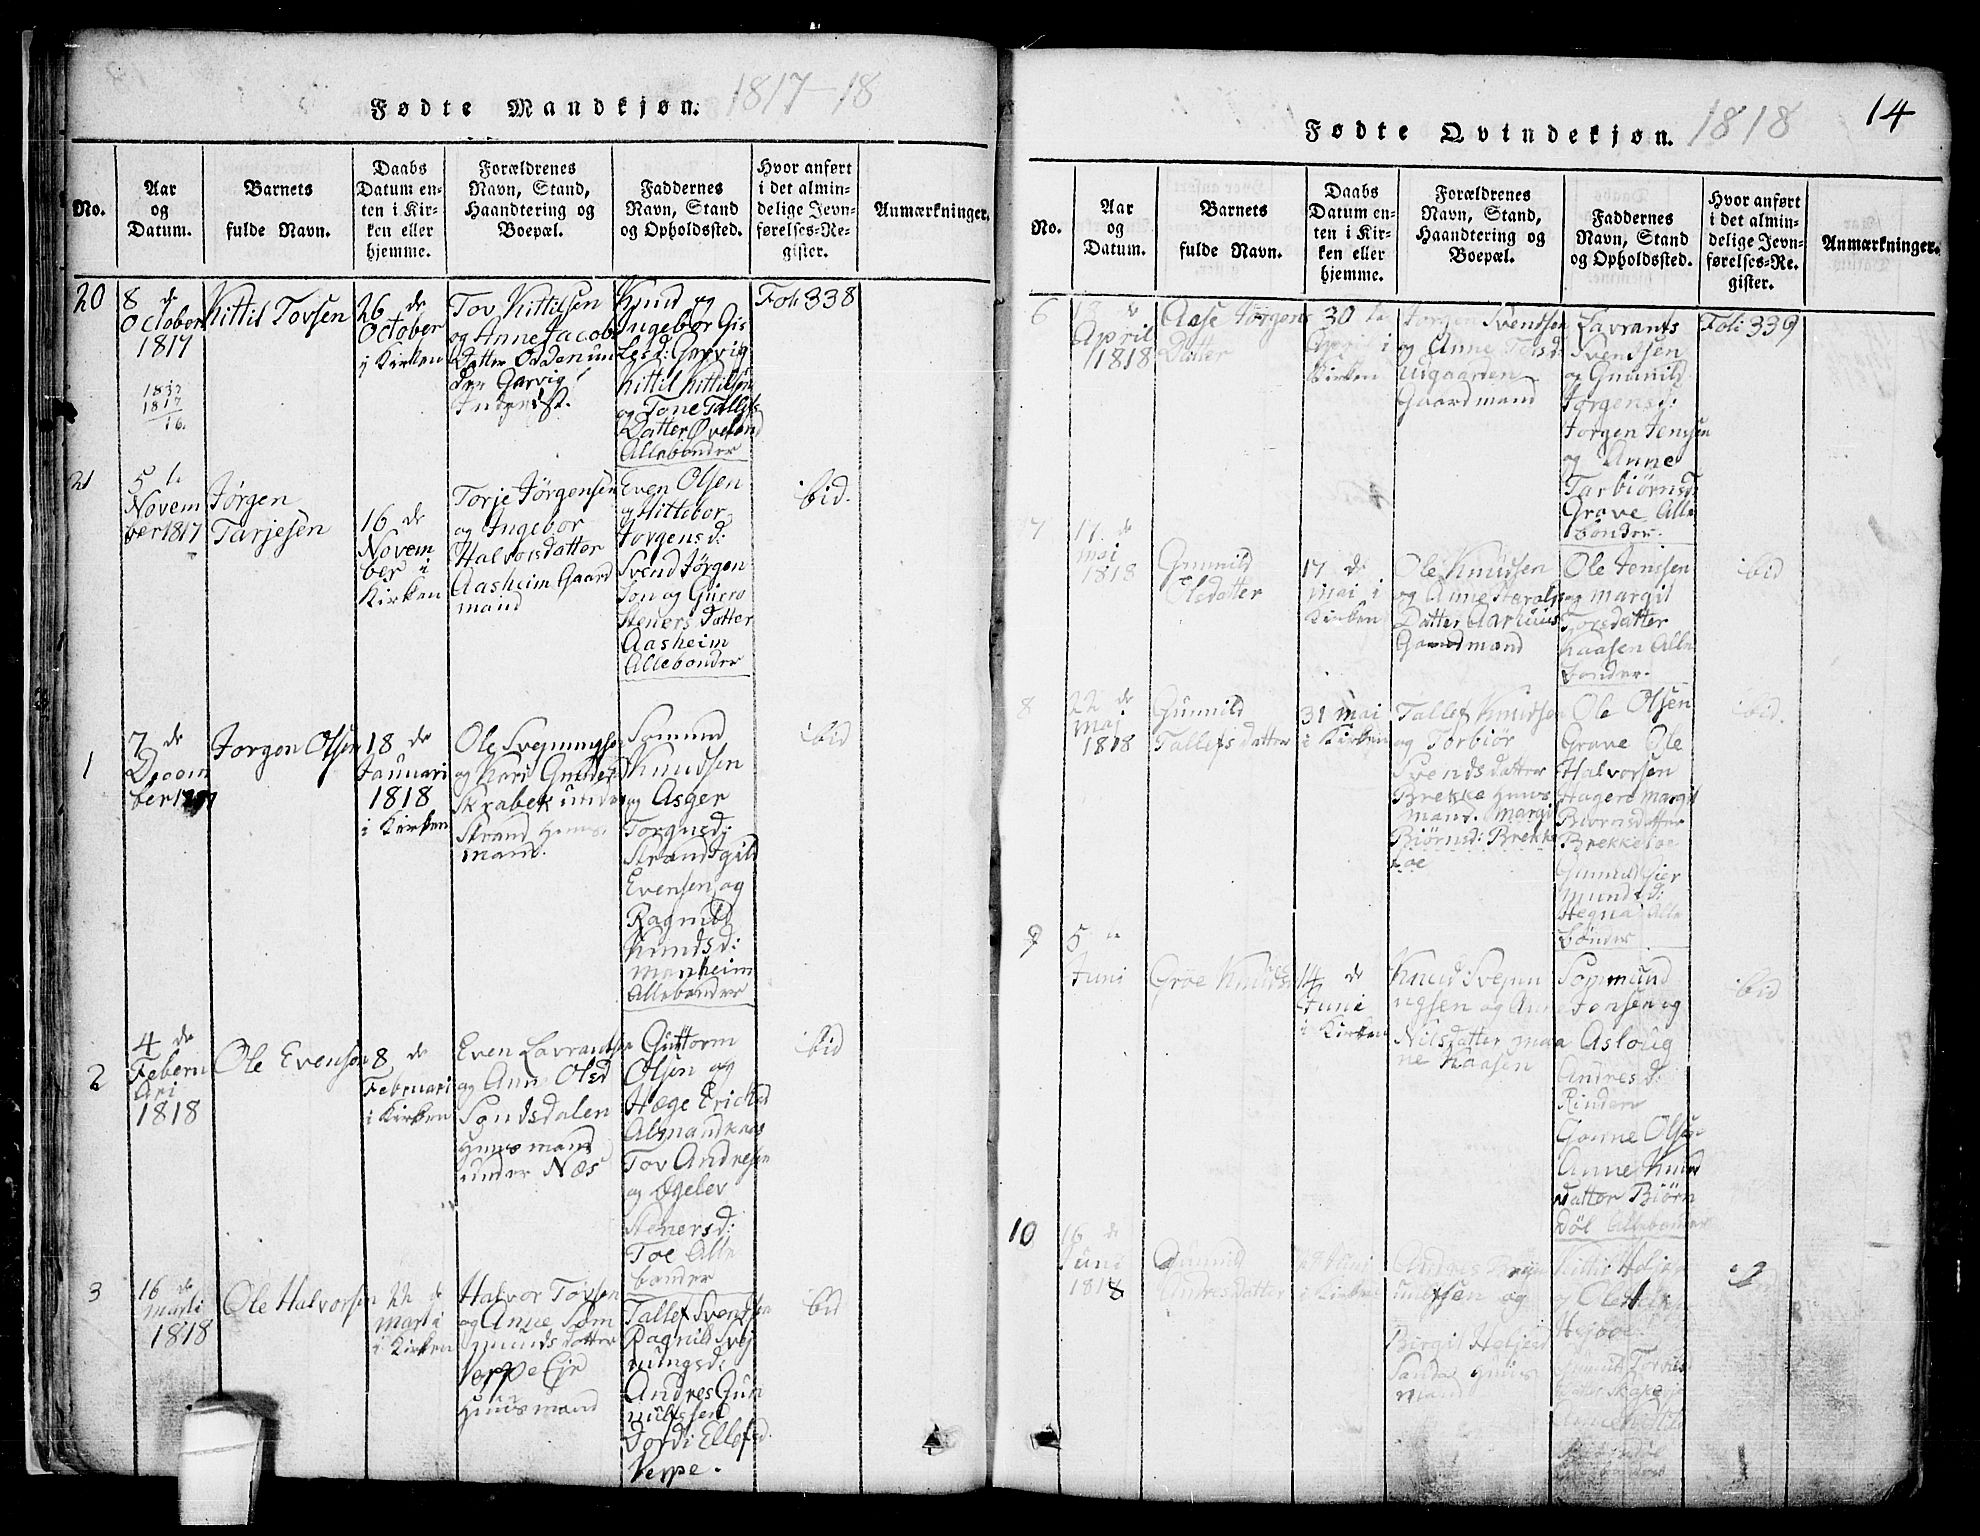 Fødte Mandkjøn. 1817-18
No.
Aar
og
Datum.
Barnets
fulde Navn.
Daabs
Datum en-
ten i Kir-
ken eller
hjemme.
Forældrenes
Navn, Stand,
Haandtering og
Boepæl.
Faddernes
Navn, Stand
og Opholdssted.
Hvor anført
i det almin-
delige Jevn-
førelses-Re-
gister.
Anmærkninger.
20
8 de
October
1817
1817
16.
Kittil Tovsen
26 de
October
i Kirken
Tov Kittilsen
og Anne Jacobs
Datter Ødden un
den Garvig
Knud og
Ingebor Gis
lesd: Gervig
Kittil Kittilsen
og Tone Tallef
Datter Øvelund
Allebønder
Foli 338
21
5 te
Novem
ber 1817
Jørgen
Tarjesen
16 de
Novem
ber i
Kirken
Torje Jørgensen
og Ingebor
Halvorsdatter
Aasheim Gaard
mand
Even Olsen
og Kittebor
Jørgensd:
Svend Jørgen
Søn og Guro
Steners Datter
Aasheim
Allebønder
ibid.
1
7 de
Decem
ber 1817
Jørgen Olsen
18 de
Januari
1818
i Kirken
Ole Svejnungsen
og Kari
Skrabek under
Strand Huus
mand.
Somund
Knudsen
og Asger
Torgusd:
Strand Egild
Evensen og
Ragnild
Knudsd:
Manheim
Allebønder
ibid
2
4 de
Februari
1818
Ole Evensen
8 de
Februari
i Kirken
Even Lavrantsen
og Ann Olsd
Sondsdalen
Huusmand
under Næs
Guttorm
Olsen og
Hæge Ericksd
Almandkaas
Tov Andresen
og Øgelev
Stenersd:
Toe Alle
bønder
ibid
3
16 de
Marti
1818
Ole Halvorsen
22 de
Marti
i Kirken
Halvor Tovsen
og Anne Som
munds datter
Verpe Eje
Huusmand
Tallef Svendsen
Ragnild Svej
nungsd:
Andres Gun
nulfsen
Jordi Ellefsd.
Verpe.
ibid
14
Fødte Qvindekjøn. 1818
No.
Aar
og
Datum.
Barnets
fulde Navn.
Daabs
Datum en-
ten i Kir-
ken eller
hjemme.
Forældrenes
Navn, Stand,
Haandtering og
Boepæl.
Faddernes
Navn, Stand
og Opholdssted.
Hvor anført
i det almin-
delige Jevn-
førelses-Re-
gister.
Anmærkninger.
6
April
1818
Aase Jørgens
Datter
30 te
April i
Kirken
Jørgen Svendsen
og Anne Toisd:
Uigaarden
Gaardmand
Lavrants
Svendsen
og Gunnild
Jørgensd:
Jørgen Jensen
og Anne
Tarbiørnsd:
Grave Alle
bønder.
Foli 339
7
11 de
Mai
1818
Gunnild
Olsdatter
17 de
Mai i
Kirken
Ole Knudsen
og Anne Haralds
Datter Aarhuus
Gaardmand
Ole Jenssen
og Margit
Torsdatter
Kaasen Alle
bønder.
ibid
8
22 de
Maj
1818
Gunnild
Tallefsdatter
31 Mai
i Kirken
Tallef Knudsen
og Torbiør
Svendsdatter
Brekke Huus
mand. Margit
Biørnsd: Brekke
toe
Ole Olsen
Grave Ole
Halvorsen
Hagere Margit
Biørnsdatter
Brekke toe
Gunnild Gier
mundsd:
Hegna Alle
bønder
ibid.
9
5 te
Juni
Groe Knudsd
14 de
Juni
i Kirken
Knud Svejnu
ngsen og Anne
Nilsdatter Maa
ne Kaasen
Sommund
Jonsen og
Asloug
Andresd:
Rinden
Gonne Olsen
Anne Knud
datter Biørn
døl Allebønder
ibid
10
16 de
Juni
1818
Gunnild
Andresdatter
Juni
i Kirken
Andres
sen og
Birgit Heljesd
Sanda Huus
mand
Kittil Heljesen
og Ole
Gunnild